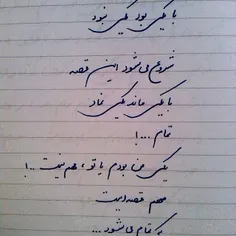 با یکی بود یکی نبود
شروع می شود این قصه
با یکی ماند یکی نماند
تمام ...!
یکی من بودم یا تو ، مهم نیست ..!
مهم قصه ایست
که تمام می شود ...